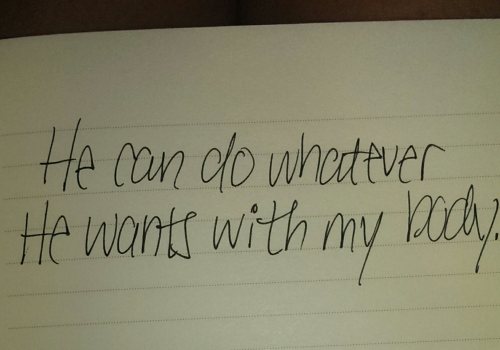 He can do whatever
He wants with my body.